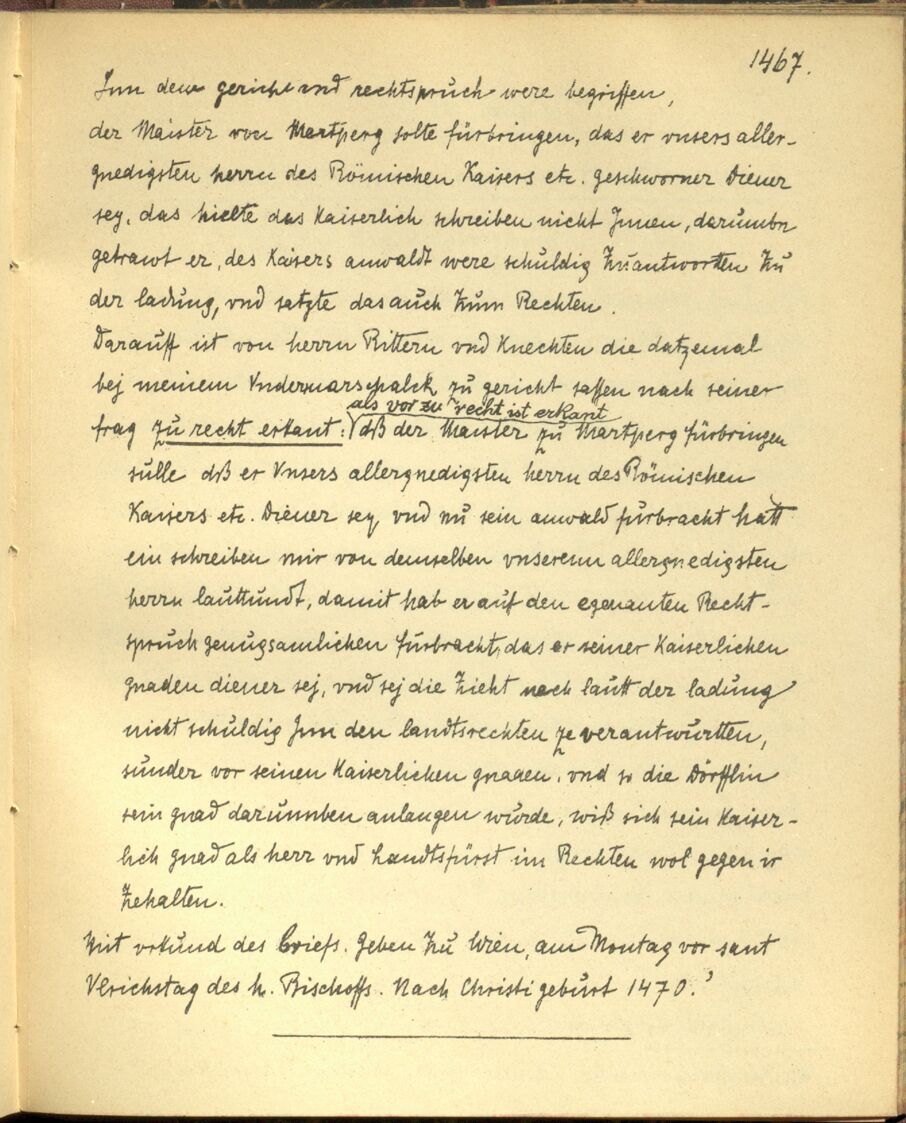 1467.
Inn dem gericht vnd rechtspruch were begriffen,
der Maister von Martperg solte fürbringen, das er vnsers aller-
gnedigsten herrn des Römischen Kaisers etc. geschworner Diener
sey, das hielte das Kaiserlich schreiben nicht Jnnen, darumbn
getrawt er, des Kaisers anwaldt were schuldig Zuantwortten Zu
der ladung, vnd satzte das auch Zum Rechten.
Darauff ist von herrn Rittern vnd Knechten die datzemal
bej meinem Vndermarschalck zu gericht sassen nach seiner
als vor zu recht ist erkant
frag zu recht erkant: dß der Maister zu Martperg fürbringen
sulle dß er Vnsers allergnedigsten herrn des Römischen
Kaisers etc. Diener sey, vnd nu sein anwald furbracht hatt
ein schreiben mir von demselben vnserenn allergnedigsten
herrn lauttundt, damit hab er auf den egenanten Recht-
spruch genugsamlichen furbracht, das er seiner Kaiserlichen
gnaden diener sej, vnd sej die Zicht nach lautt der ladung
nicht schuldig Jnn den landtsrechten ze verantwurtten,
sunder vor seinen Kaiserlichen gnaden, vnd so die Dörfflin
sein gnad darumben anlangen wurde, wiß sich sein Kaiser-
lich gnad als herr vnd Landtsfürst im Rechten wol gegen ir
Zehalten.
Mit vrkund des briefs. Geben Zu Wien, am Montag vor sant
Vlrichstag des h. Bischoffs. Nach Christi geburt 1470.'